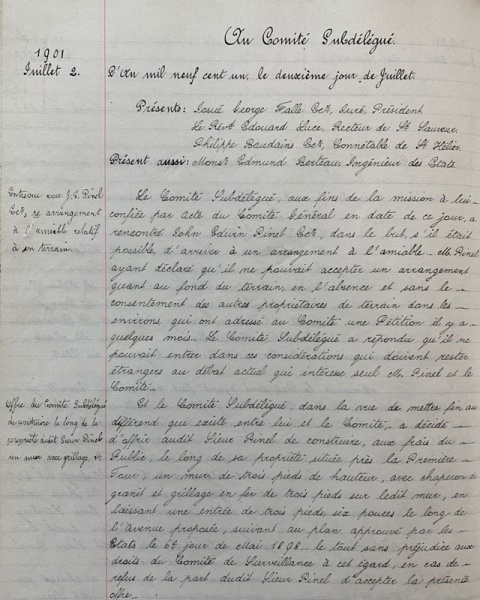 Au Comité Subdélégué.
1901
Juillet 2.
L'An mil neuf cent un, le deuxième jour de Juillet.
Présents: Josué George Falle Ecr, Juré, Président
Le Révd Edouard Luce, Recteur de St Sauveur,
Philippe Baudains Ecr, Connétable de St Hélier,
Présent aussi: Monsr Edmund Berteau, Ingénieur des Etats.
Entrevue avec J. E. Pinel
Ecr, re arrangement
à l'amiable relatif
à un terrain.
Le Comité Subdélégué, aux fins de la mission à lui
confiée par Acte du Comité Général en date de ce jour, a
rencontré John Edwin Pinel Ecr, dans le but, s'il était
possible, d'arriver à un arrangement à l'amiable. M. Pinel
ayant déclaré qu'il ne pouvait accepter un arrangement
quant au fond du terrain, en l'absence et sans le
consentement des autres propriétaires de terrain dans les
environs, qui ont adressé au Comité une Pétition il y a
quelques mois. Le Comité Subdélégué a répondu qu'il ne
pouvait entrer dans ces considérations qui doivent rester
étrangers au débat actuel qui intéresse seul M. Pinel et le
Comité.
Offre du Comité Subdélégué
de construire le long de la
propriété dudit Sieur Pinel
un mur avec grillage, &c
Et le Comité Subdélégué, dans la vue de mettre fin au
différend que existe entre lui et le Comité a décidé
d'offrir audit Sieur Pinel de construire, aux frais du
Public, le long de sa propriété située près la Première
Tour, un mur de trois pieds de hauteur, avec chaperon de
granit et grillage en fer de trois pieds sur ledit mur, en
laissant une entrée de trois pieds six pouces le long de
l'avenue proposée, suivant au plan approuvé par les
Etats le 6e jour de Mai 1898. le tout sans préjudice aux
droits du Comité de Surveillance à cet égard, en cas de
refus de la part dudit Sieur Pinel d'accepter la présente
offre.